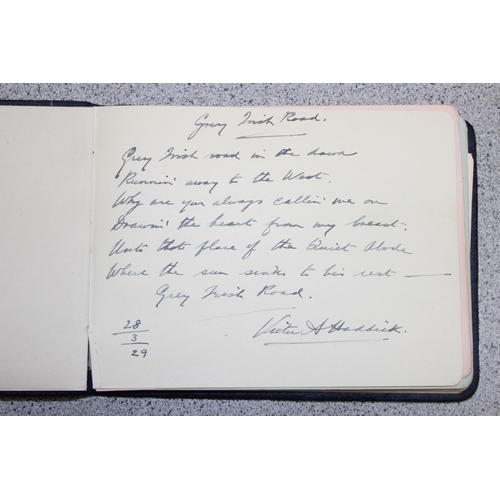 Grey Irish Road.
Grey Irish road in the dawn
Runnin' away to the West.
Why are you always callin' me on
Drawin' the heart from my breast.
Unto that place of the Quiet Abode
Where the sun sinks to his rest —
Grey Irish Road.
28
3
29
Victor A Haddick.